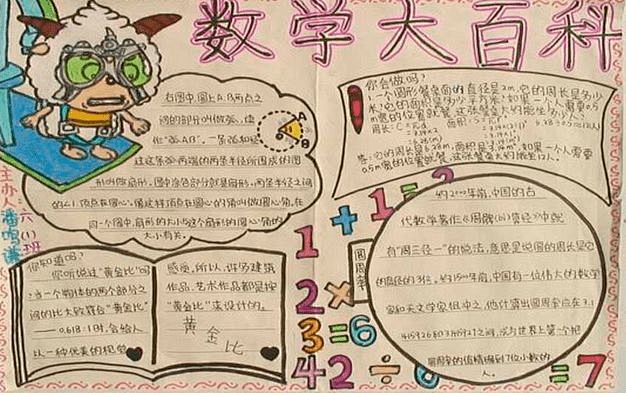 数学大百科
主办人：
六(1)班
右图中,圆上A、B两点之
间的部分叫做弧,读
作“弧AB”,一条弧和经
过这条弧两端的两条半径所围成的图
形叫做扇形,图中涂色部分就是扇形,两条半径之间
的∠1,顶点在圆心,像这样顶点在圆心的角叫做圆心角,在
同一个圆中,扇形的大小与这个扇形的圆心角的
大小有关。
A
B
O
你会做吗？
一个圆形餐桌面的直径是2m,它的周长是多少
米？它的面积是多少平方米？如果一个人需要0.5
m宽的位置就餐,这张餐桌大约能坐多少人？
周长：C=πd
答：它的周长是6.28m,面积是3.14m²,如果一个人需要
0.5m宽的位置就餐,这张餐桌大约能坐12人。
1+1=2
2×
3=6
42÷6
=7
圆周率
约2000年前,中国的古
代数学著作《周髀算经》中就
有“周三径一”的说法,意思是说圆的周长是它
的直径的3倍。约1500年前,中国有一位伟大的数学
家和天文学家祖冲之,他计算出圆周率应在3.1
415926和3.1415927之间,成为世界上第一个把
圆周率的值精确到7位小数的
人。
你知道吗？
你听说过“黄金比”吗
？当一个物体的两个部分之
间的比大致符合“黄金比”
——0.618:1时,会给人
以一种优美的视觉
感觉,所以,许多建筑
作品、艺术作品都是按
“黄金比”来设计的。
黄
金
比